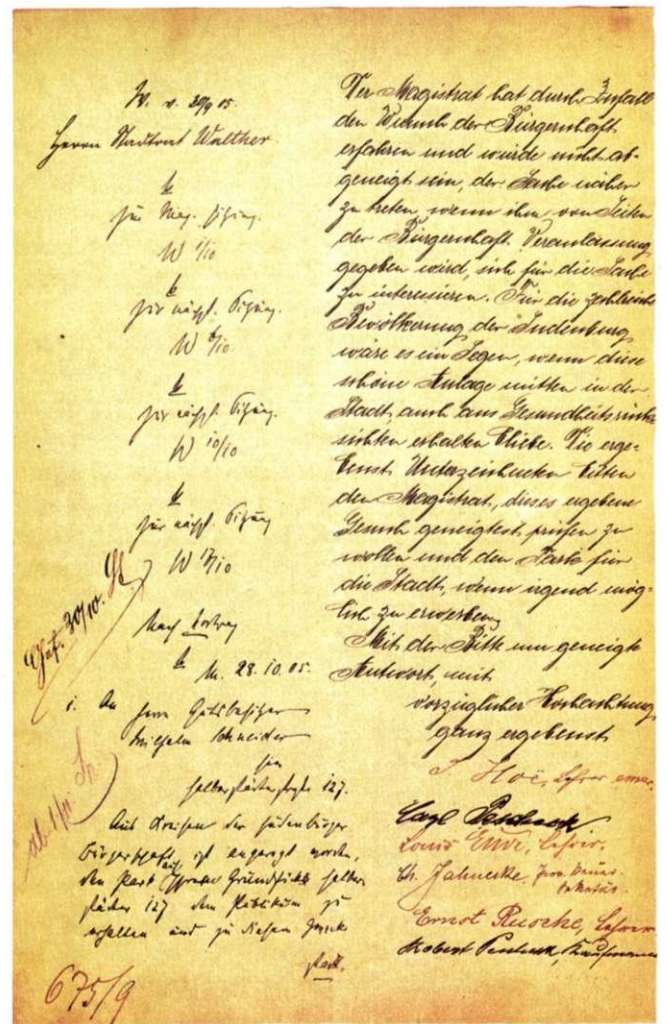 W. v. 30/9 05.
Herrn Stadtrat Walther.
zur Mag. Sitzung.
W 1/10
zur nächst. Sitzung.
W 6/10.
zur nächst. Sitzung.
W 10/10
zur nächst. Sitzung
W 17/10
Gef. 30/10.
Nach Vortrag
M. 28.10.05.
1. An
Herrn Gutsbesitzer
Wilhelm Schneider
hier
Halberstädterstraße 127.
ab 1/11
Aus Kreisen der Sudenburger
Bürgerschaft ist angeregt worden,
den Park Ihres Grundstücks Halber-
städter 127 dem Publikum zu
erhalten und zu diesem Zweck
675/9
Der Magistrat hat durch Zufall
den Wunsch der Bürgerschaft
erfahren und würde nicht ab-
geneigt sein, der Sache näher
zu treten, wenn ihm von Seiten
der Bürgerschaft Veranlassung
gegeben wird, sich für die Sache
zu interessieren. Für die zahlreiche
Bevölkerung der Sudenburg
wäre es ein Segen, wenn diese
schöne Anlage mitten in der
Stadt, auch aus Gesundheitsrück-
sichten erhalten bliebe. Die erge-
benst Unterzeichneten bitten
den Magistrat, dieses ergebene
Gesuch geneigtest prüfen zu
wollen und den Park für
die Stadt, wenn irgend mög-
lich zu erwerben
Mit der Bitte um geneigte
Antwort, mit
vorzüglicher Hochachtung
ganz ergebenst
Lehrer emer.
Carl Pescheck
Louis
Ch. Jahnecke
Ernst Rusche, Lehrer
Robert Pescheck, Kaufmann